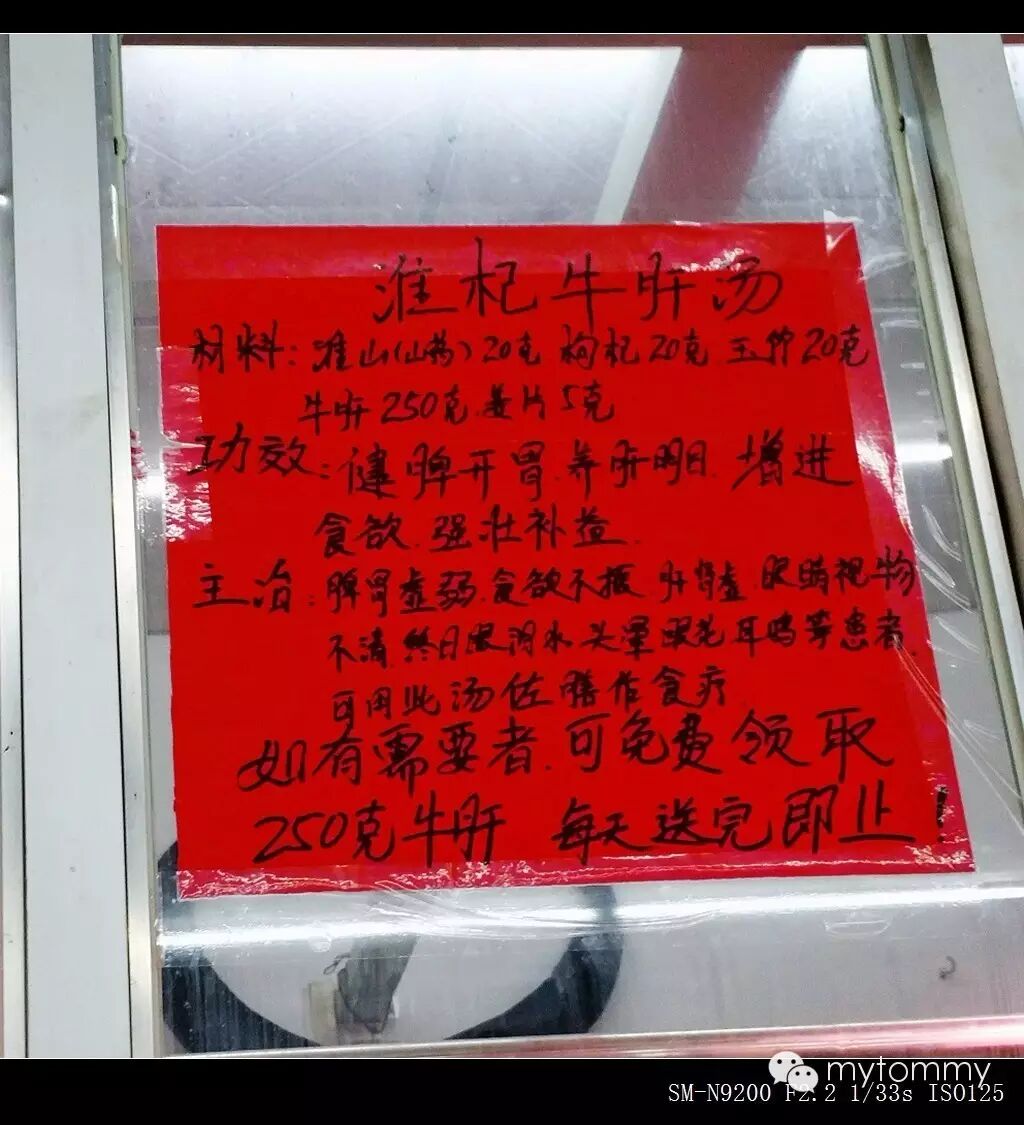 淮杞牛肝汤
材料:淮山(山药)20克 枸杞20克 玉竹20克
牛肝250克.姜片5克
功效:健脾开胃.养肝明目.增进
食欲.强壮补益.
主治:脾胃虚弱.食欲不振 肝肾虚.眼睛视物
不清.终日眼泪水.头晕眼花.耳鸣等患者.
可用此汤佐膳作食疗
如有需要者.可免费领取
250克牛肝 每天送完即止!
mytommy
SM-N9200 F2.2 1/33s ISO125